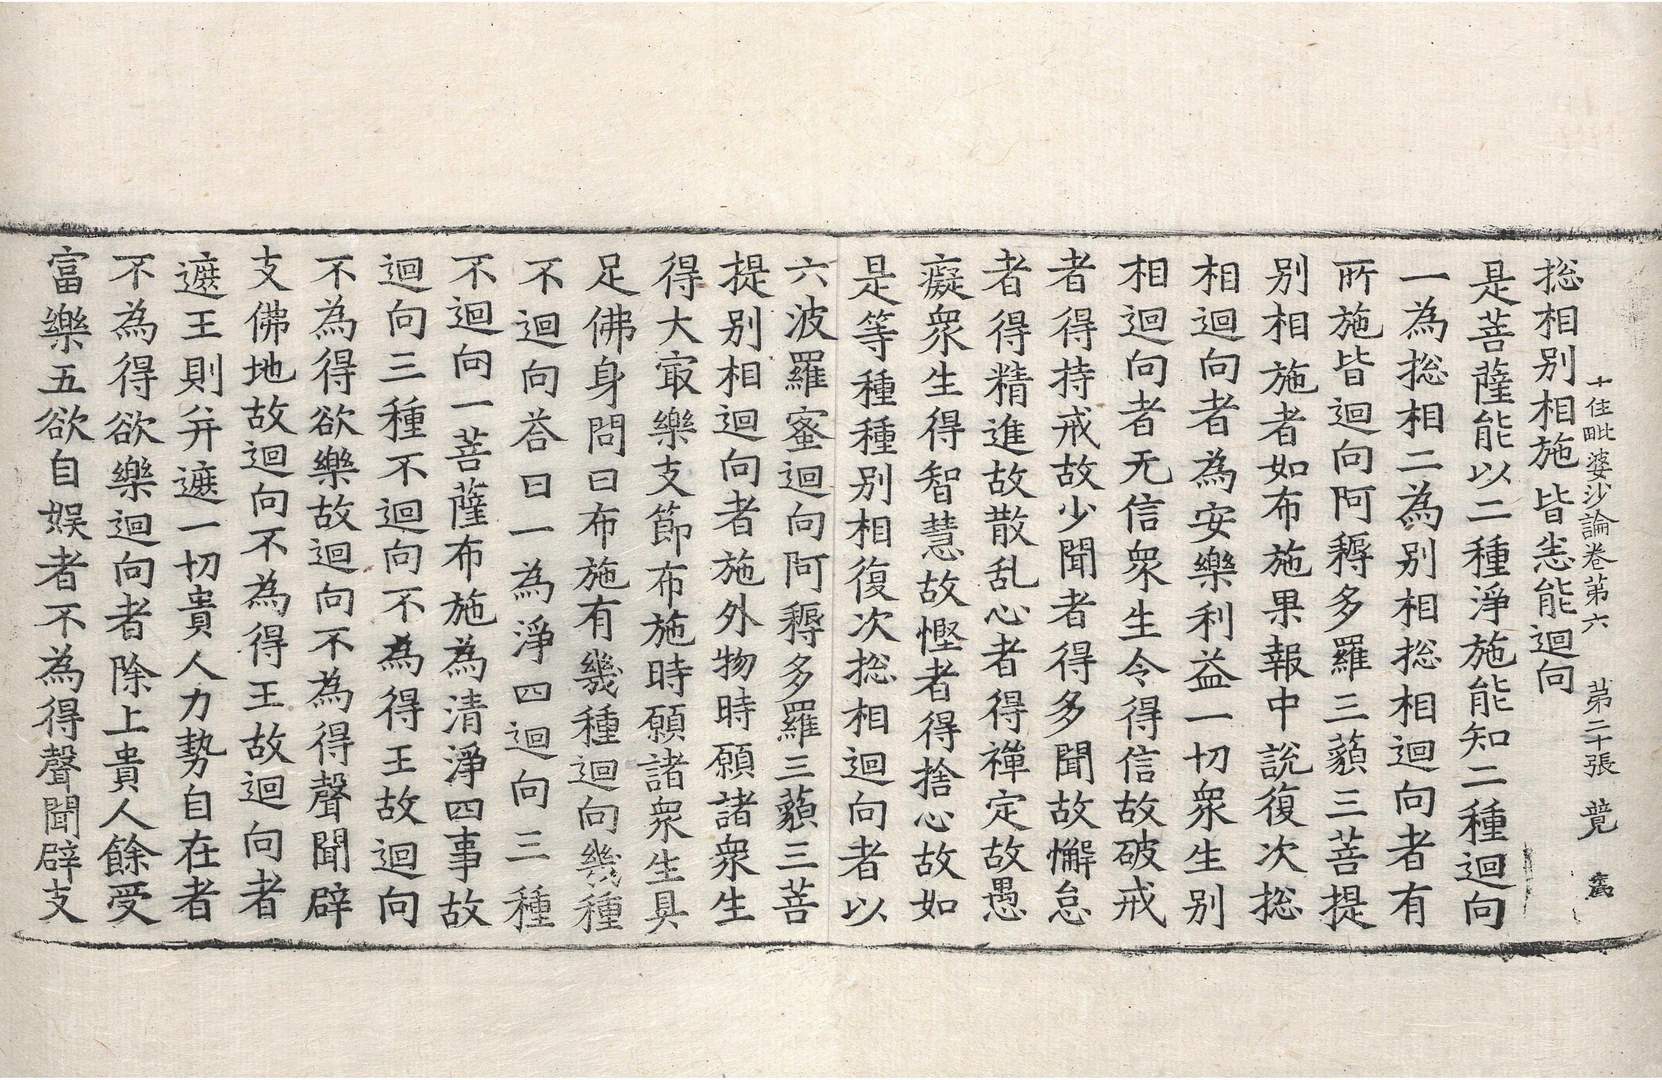 十住毗婆沙論卷第六　第二十張　竟
揔相別相施　皆悉能迴向
是菩薩能以二種淨施能知二種迴向
一為揔相二為別相揔相迴向者有
所施皆迴向阿耨多羅三藐三菩提
別相施者如布施果報中說復次揔
相迴向者為安樂利益一切衆生別
相迴向者无信衆生令得信故破戒
者得持戒故少聞者得多聞故懈怠
者得精進故散乱心者得禪定故愚
癡衆生得智慧故慳者得捨心故如
是等種種別相復次揔相迴向者以
六波羅蜜迴向阿耨多羅三藐三菩
提別相迴向者施外物時願諸衆生
得大㝡樂支節布施時願諸衆生具
足佛身問曰布施有幾種迴向幾種
不迴向荅曰一為淨四迴向三種
不迴向一菩薩布施為清淨四事故
迴向三種不迴向不為得王故迴向
不為得欲樂故迴向不為得聲聞辟
支佛地故迴向不為得王故迴向者
遮王則并遮一切貴人力勢自在者
不為得欲樂迴向者除上貴人餘受
富樂五欲自娛者不為得聲聞辟支